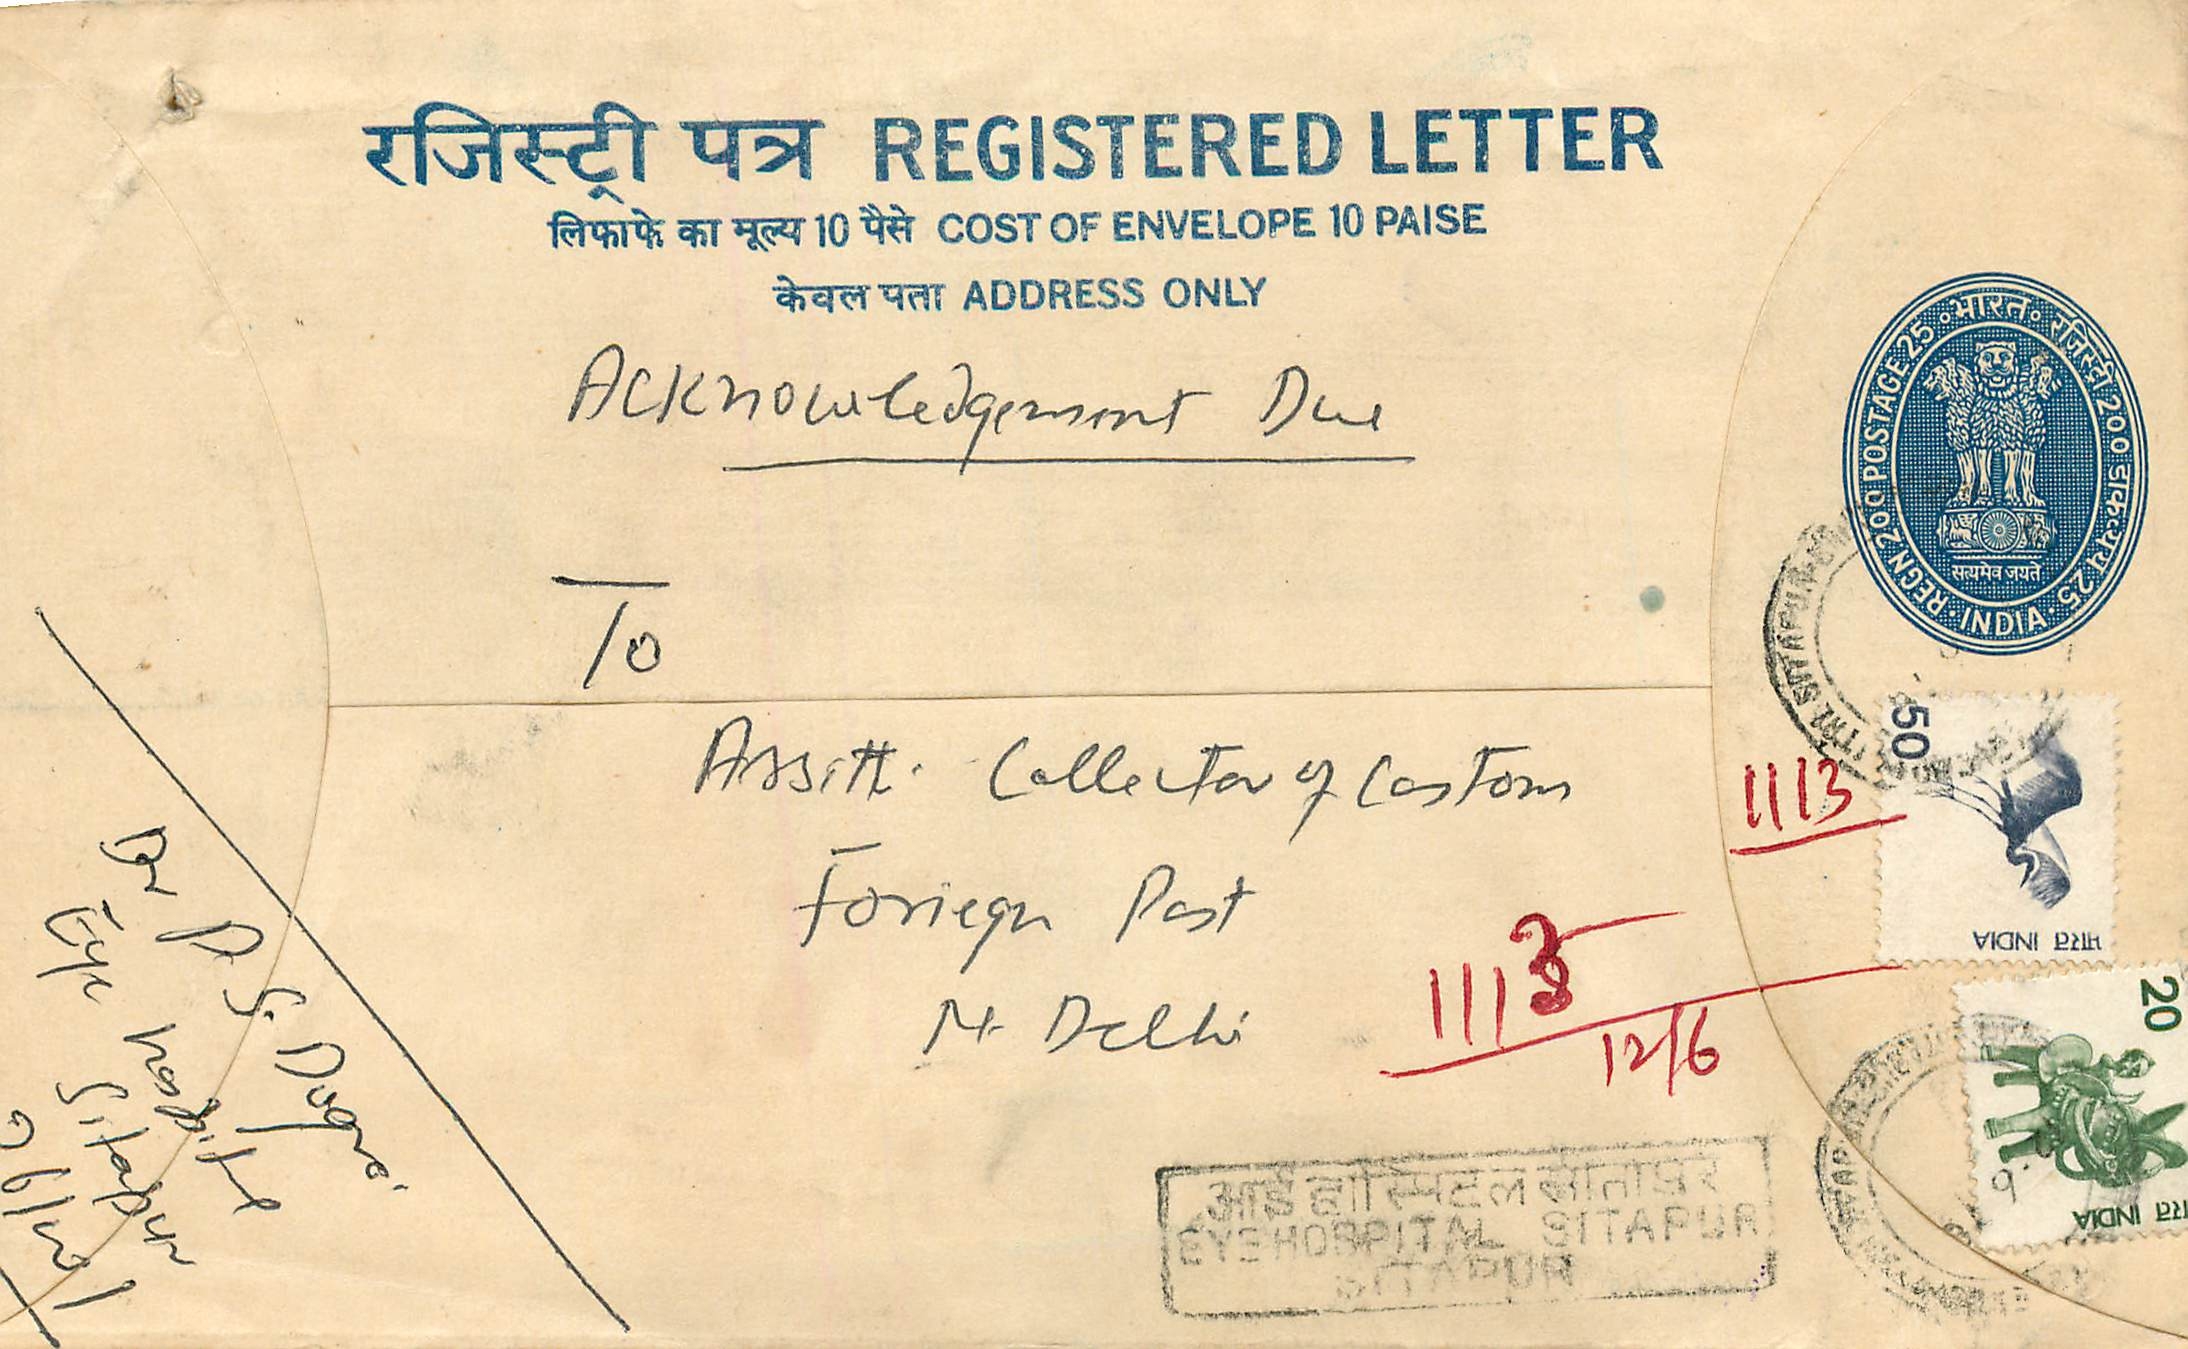 रजिस्ट्री पत्र REGISTERED LETTER
लिफाफे का मूल्य 10 पैसे COST OF ENVELOPE 10 PAISE
केवल पता ADDRESS ONLY
भारत रजिस्ट्री 200 डाक-व्यय 25
REGN 200 POSTAGE 25
INDIA
सत्यमेव जयते
Acknowledgement Due
To
Assitt. Collector of Customs
Foriegn Post
N. Delhi
50
भारत INDIA
20
भारत INDIA
1113
1113
12/6
आई हॉस्पिटल सीतापुर
EYE HOSPITAL SITAPUR
SITAPUR
SITAPUR
Dr D. S. Dugre.
Eye Hospital
Sitapur